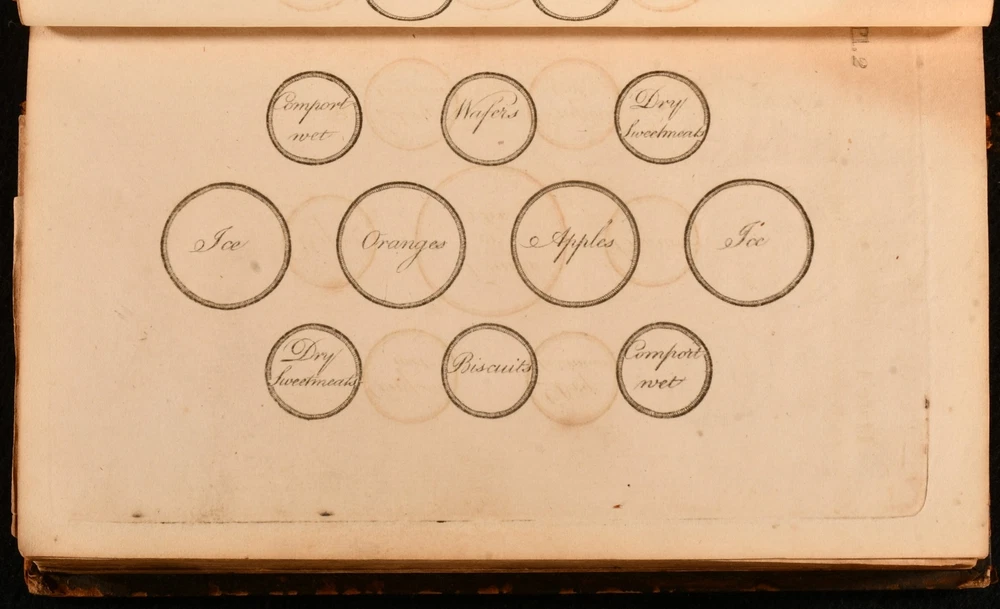 PL.2
Comport
wet
Wafers
Dry
Sweetmeats
Ice
Oranges
Apples
Ice
Dry
Sweetmeats
Biscuits
Comport
wet